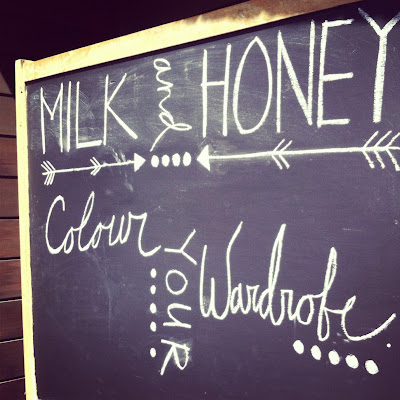 MILK and HONEY
Colour YOUR Wardrobe